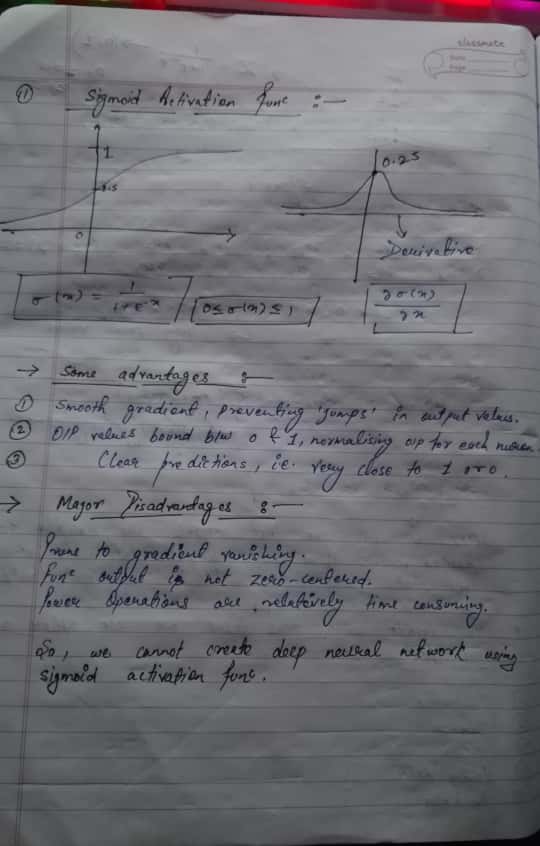 classmate
Date
Page
① Sigmoid Activation func :—
1
0.5
0
0.25
Derivative
σ(x) = 1 / 1+e^-x
0 ≤ σ(x) ≤ 1
∂σ(x) / ∂x
→ Some advantages :—
① Smooth gradient, preventing 'jumps' in output values.
② O/P values bound b/w 0 & 1, normalising o/p for each neuron
③ Clear predictions, i.e. very close to 1 or 0.
→ Major Disadvantages :—
Prone to gradient vanishing.
Func output is not zero-centered.
Power Operations are relatively time consuming.
So, we cannot create deep neural network using
sigmoid activation func.